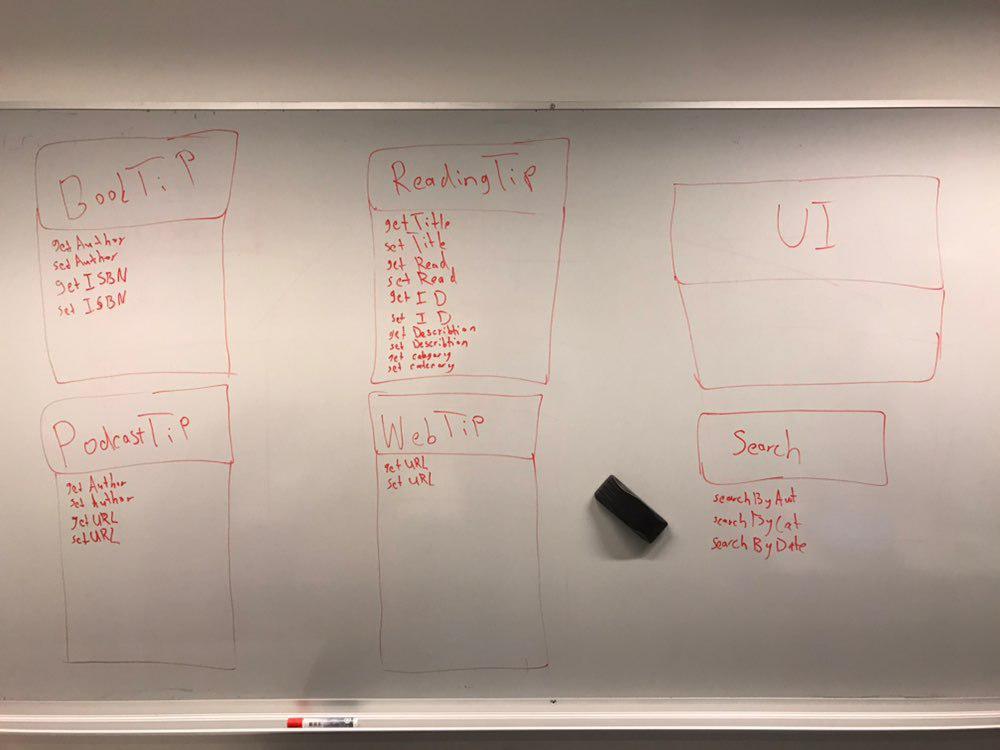 BookTiP
get Author
set Author
get ISBN
set ISBN
ReadingTiP
get Title
set Title
get Read
set Read
get ID
set ID
get Describtion
set Describtion
get
set
UI
PodcastTiP
get Author
set Author
get URL
set URL
WebTiP
get URL
set URL
Search
searchByAut
searchByCat
searchByDate